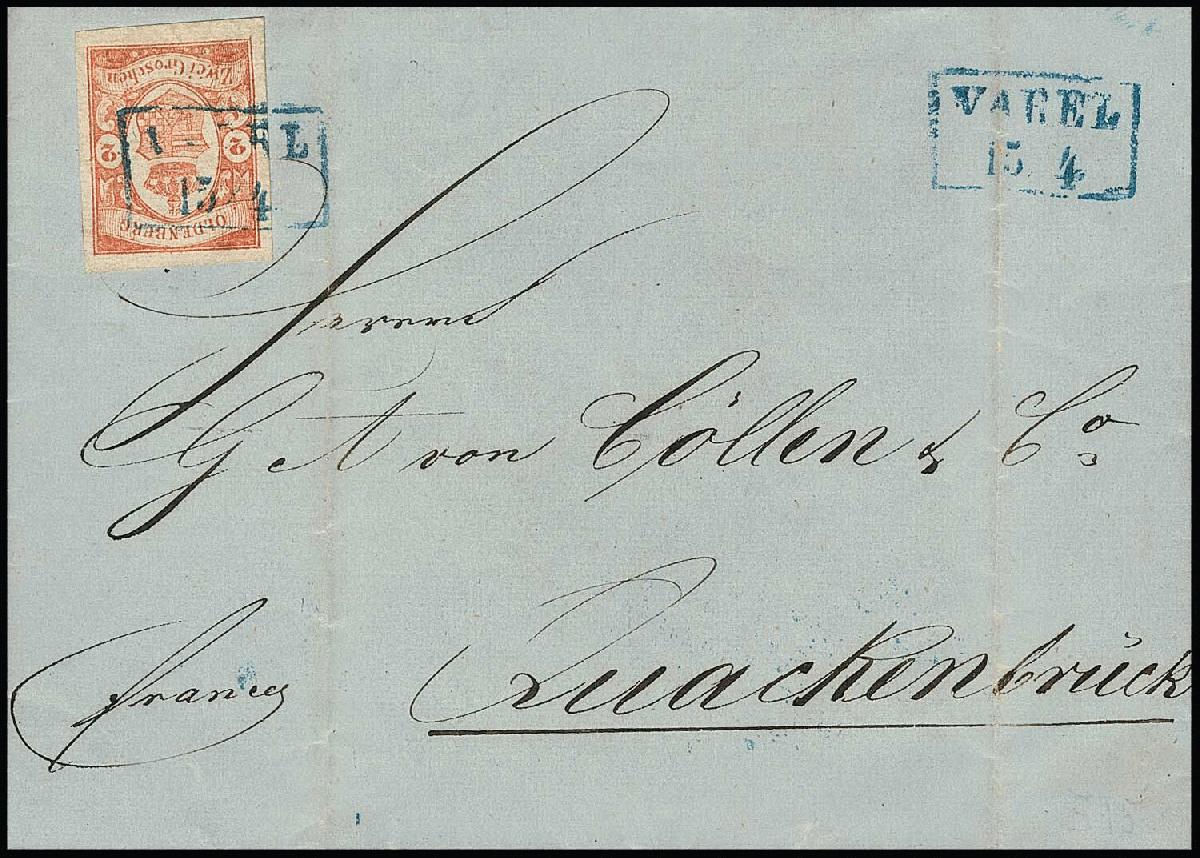 Zwei Groschen
2 2
OLDENBERG
VAREL
15 4
VAREL
15 4
Herrn
G A von Cöllen & Co
franco
Quackenbrück